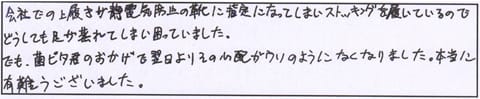 会社での上履きが静電気防止の靴に指定になってしまいストッキングを履いているので
どうしても足が蒸れてしまい困っていました。
でも、菌ピタ君のおかげで翌日よりその心配がウソのようになくなりました。本当に
有難うございました。